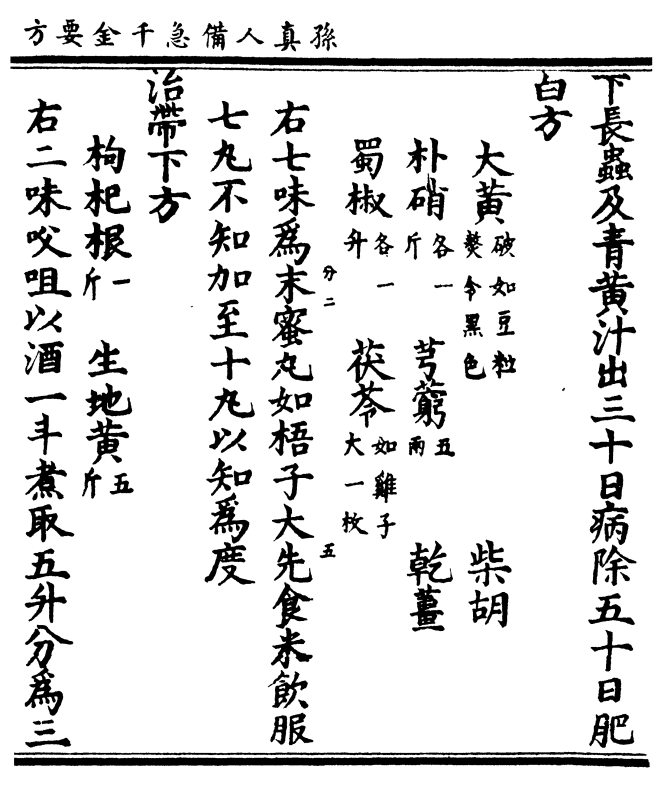 孫真人備急千金要方
下長蟲及青黃汁出三十日病除五十日肥
白方
大黃破如豆粒熬令黑色 柴胡
朴硝各一斤 芎藭五兩 乾薑
蜀椒各一升 茯苓如雞子大一枚
右七味為末蜜丸如梧子大先食米飲服
七丸不知加至十丸以知為度
治帶下方
枸杞根一斤 生地黃五斤
右二味㕮咀以酒一斗煮取五升分為三
分二
五